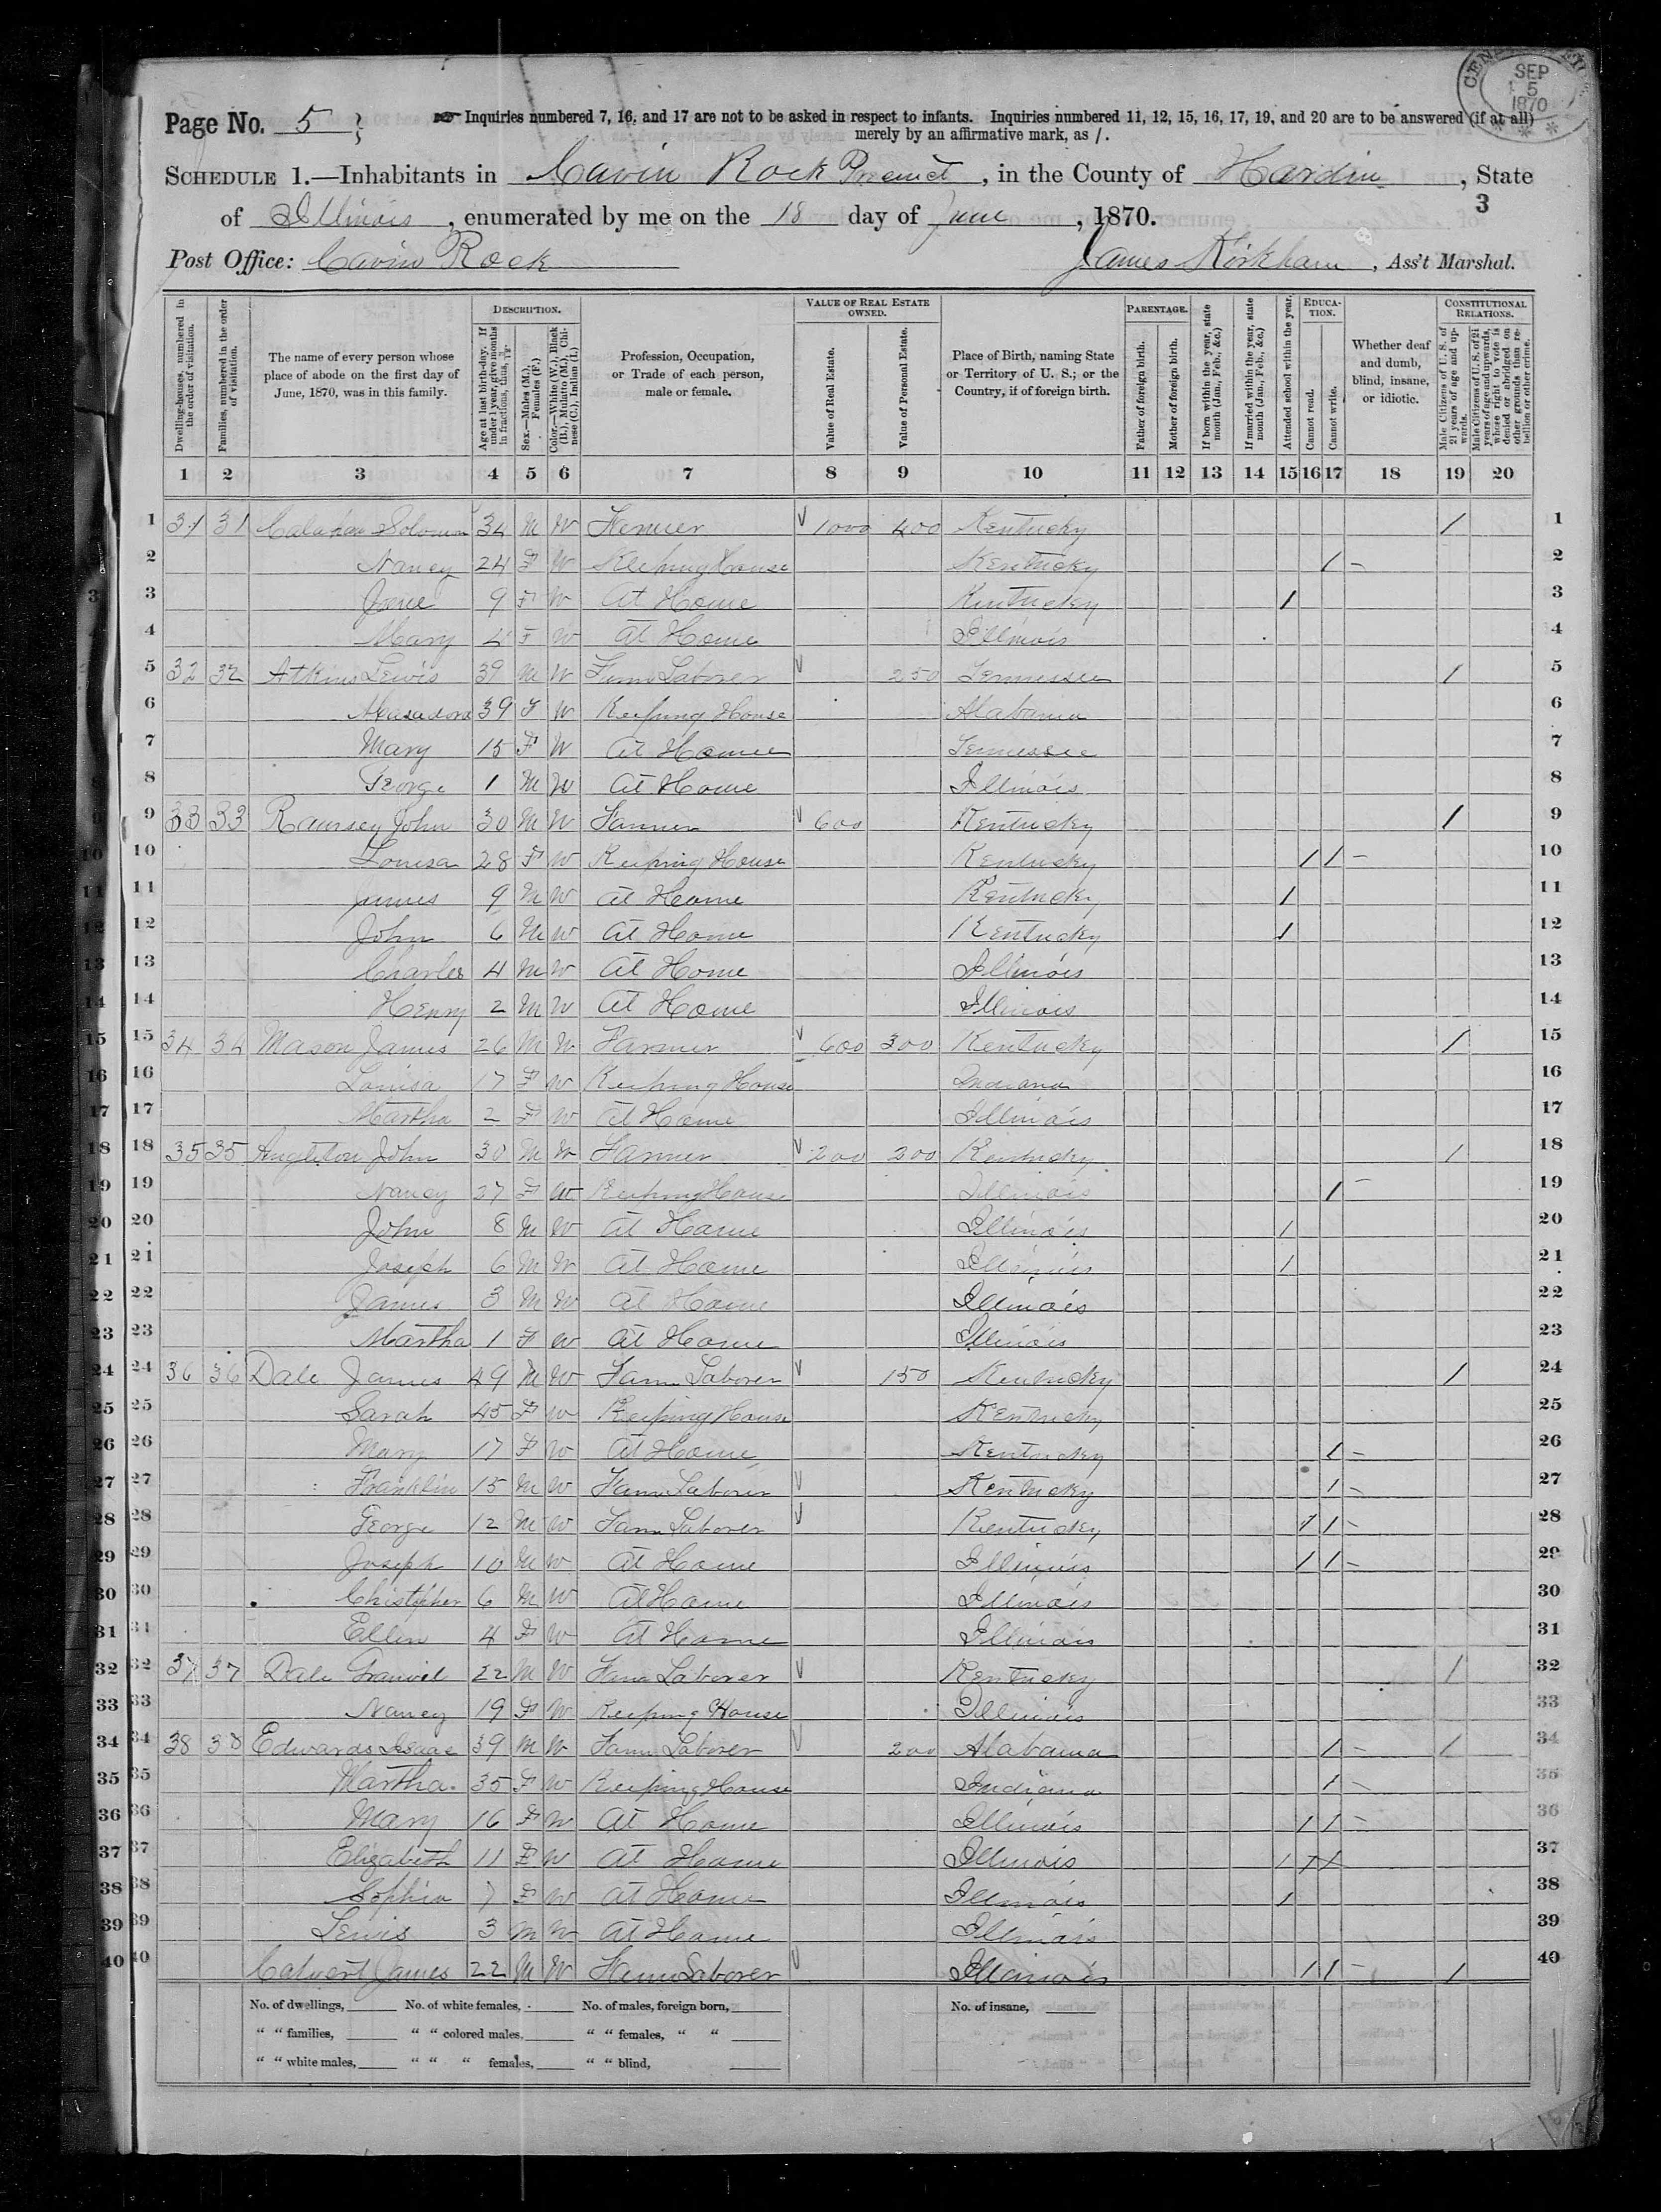 Page No. 5
Inquiries numbered 7, 16, and 17 are not to be asked in respect to infants. Inquiries numbered 11, 12, 15, 16, 17, 19, and 20 are to be answered (if at all)
merely by an affirmative mark, as /.
SEP
5
1870
SCHEDULE 1.—Inhabitants in Cavin Rock Precinct, in the County of Hardin, State
of Illinois, enumerated by me on the 18 day of June, 1870.
3
Post Office: Cavin Rock James Kirkham, Ass't Marshal.
Dwelling-houses, numbered in the order of visitation.
Families, numbered in the order of visitation.
The name of every person whose place of abode on the first day of June, 1870, was in this family.
DESCRIPTION.
Age at last birth-day. If under 1 year, give months in fractions, thus,
Sex.—Males (M.), Females (F.)
Color.—White (W.), Black (B.), Mulatto (M.), Chinese (C.), Indian (I.)
Profession, Occupation, or Trade of each person, male or female.
VALUE OF REAL ESTATE OWNED.
Value of Real Estate.
Value of Personal Estate.
Place of Birth, naming State or Territory of U. S.; or the Country, if of foreign birth.
PARENTAGE.
Father of foreign birth.
Mother of foreign birth.
If born within the year, state month (Jan., Feb., &c.)
If married within the year, state month (Jan., Feb., &c.)
Attended school within the year.
EDUCATION.
Cannot read.
Cannot write.
Whether deaf and dumb, blind, insane, or idiotic.
CONSTITUTIONAL RELATIONS.
Male Citizens of U. S. of 21 years of age and upwards.
Male Citizens of U. S. of 21 years of age and upwards, whose right to vote is denied or abridged on other grounds than rebellion or other crime.
1 2 3 4 5 6 7 8 9 10 11 12 13 14 15 16 17 18 19 20
1 31 31 Solomon 34 M W Farmer 1000 400 Kentucky / 1
2 Nancy 24 F W Keeping House Kentucky / – 2
3 Jane 9 F W At Home Kentucky / 3
4 Mary 4 F W At Home Illinois 4
5 32 32 Atkins Lewis 39 M W Farm Laborer 250 Tennessee / 5
6 39 F W Keeping House Alabama 6
7 Mary 15 F W At Home Tennessee 7
8 George 1 M W At Home Illinois 8
9 33 33 Ramsey John 30 M W Farmer 600 Kentucky / 9
10 Louisa 28 F W Keeping House Kentucky / / – 10
11 James 9 M W At Home Kentucky / 11
12 John 6 M W At Home Kentucky / 12
13 Charles 4 M W At Home Illinois 13
14 Henry 2 M W At Home Illinois 14
15 34 34 Mason James 26 M W Farmer 600 300 Kentucky / 15
16 Louisa 17 F W Keeping House Indiana 16
17 Martha 2 F W At Home Illinois 17
18 35 35 Angleton John 30 M W Farmer 200 200 Kentucky / 18
19 Nancy 27 F W Keeping House Illinois / – 19
20 John 8 M W At Home Illinois / 20
21 Joseph 6 M W At Home Illinois / 21
22 James 3 M W At Home Illinois 22
23 Martha 1 F W At Home Illinois 23
24 36 36 Dale James 49 M W Farm Laborer 150 Kentucky / 24
25 Sarah 45 F W Keeping House Kentucky 25
26 Mary 17 F W At Home Kentucky / – 26
27 Franklin 15 M W Farm Laborer Kentucky / – 27
28 George 12 M W Farm Laborer Kentucky / / – 28
29 Joseph 10 M W At Home Illinois / / – 29
30 Christopher 6 M W At Home Illinois 30
31 Ellen 4 F W At Home Illinois 31
32 37 37 Dale Granvil 22 M W Farm Laborer Kentucky / 32
33 Nancy 19 F W Keeping House Illinois 33
34 38 38 Edwards Isaac 39 M W Farm Laborer 200 Alabama / – / 34
35 Martha 35 F W Keeping House Indiana / – 35
36 Mary 16 F W At Home Illinois / / – 36
37 Elizabeth 11 F W At Home Illinois / / / 37
38 Sophia 7 F W At Home Illinois / 38
39 Lewis 3 M W At Home Illinois 39
40 Calvert James 22 M W Farm Laborer Illinois / / – / 40
No. of dwellings, No. of white females, No. of males, foreign born, No. of insane,
" " families, " " colored males, " " females, " "
" " white males, " " " females, " " blind,